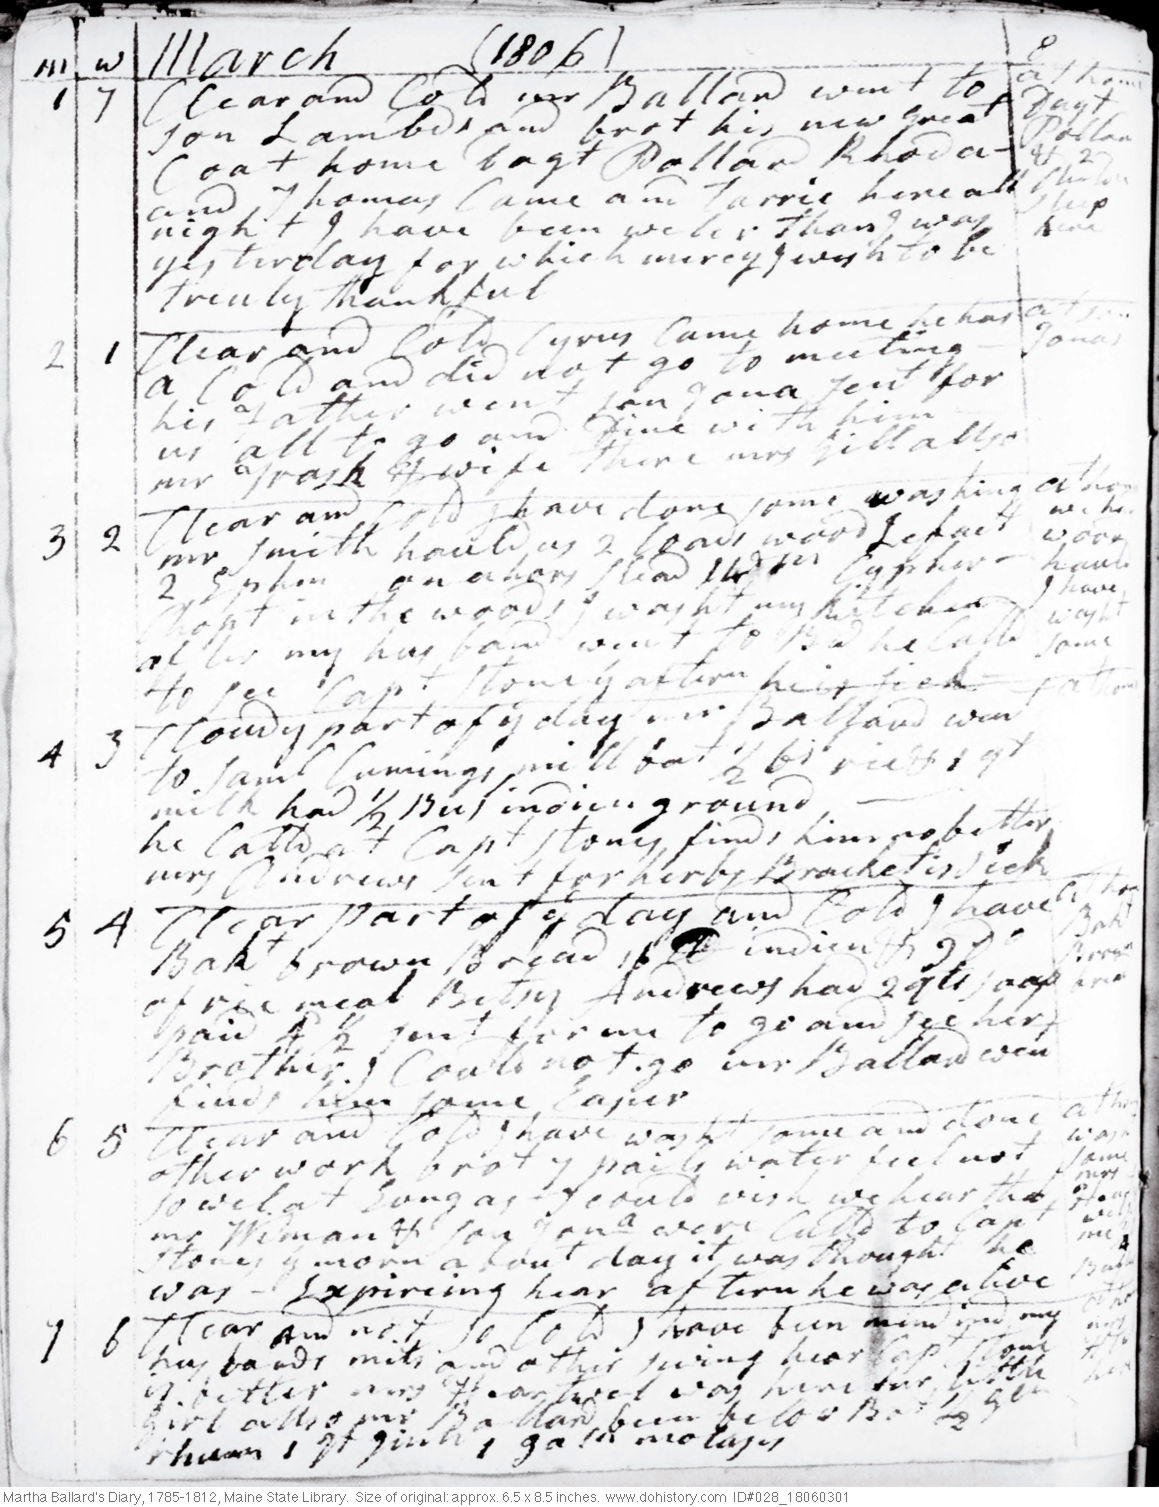 m w March (1806)
1 7 Clear and Cold mr Ballard went to
son Lambds and brot his new great
Coat home Dagt Pollard Rhoda
and Thomas Came and Tarrie here all
night I have been weler than I was
yesterday for which mercy I wish to be
treuly thankful
at home
Dagt
Pollard
& 2
sleep
here
2 1 Clear and Cold Cyrus Came home he has
a Cold and did not go to meeting
his Father went son Jona sent for
us all to go and Dine with him
mr Trask & wife there mrs Gill allso
at son
Jonas
3 2 Clear and Cold I have done some washing
mr Smith hauld us 2 loads wood
2 Ephm on a hors slead
Chopt in the woods I washt my kitchen
after my husband went to Bed he Calld
to see Capt Stoney aftern he is sick
at home
wood
hauld
I have
washt
some
4 3 Cloudy part of y day mr Ballard went
to Saml Cumings mill bot ½ bs rie & 1 qt
milk had ½ Bus indien ground
he Calld at Capt Stoneys finds him no better
mrs Andrews sent for herbs Bracket is sick
at home
5 4 Clear part of y day and Cold I have
Bakt brown Bread indien &
of rie meal Betsy Andrews had 2 qts soap
paid 4 ½ sent for me to go and see her
Brother I Could not go mr Ballard went
finds him some Easier
Bakt
Brown
bread
6 5 Clear and Cold I have washt some and done
other work brot 7 pails water feel not
so wel at Lungs as I could wish we hear that
mr Wiman & son Jona were Calld to Capt
Stoneys y morn about day it was thought he
was Expiering hear aftern he was alive
at home
washt
some
mrs
7 6 Clear and not so Cold I have been mending my
husbands mits and other sewing hear Capt Stone
is better mrs Heartwel was here her little
girl allso mr Ballard been below Bot ½ gln
rhum 1 qt ginn 1 galn molases
Martha Ballard's Diary, 1785-1812, Maine State Library. Size of original: approx. 6.5 x 8.5 inches. www.dohistory.com ID#028_18060301